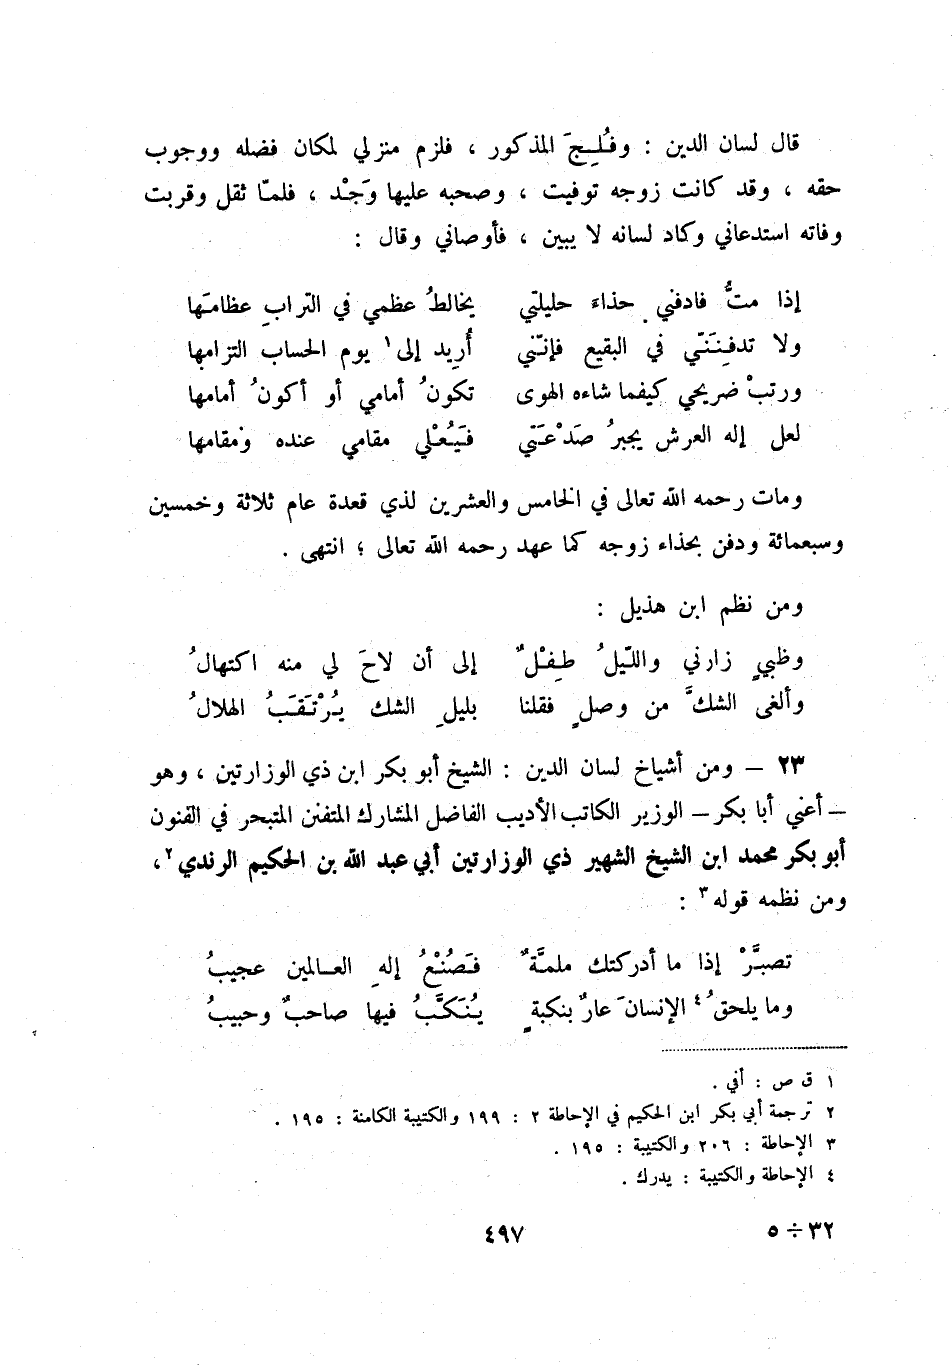 قال لسان الدين : وفُلِجَ المذكور ، فلزم منزلي لمكان فضله ووجوب
حقه ، وقد كانت زوجه توفيت ، وصحبه عليها وَجْد ، فلمّا ثقل وقربت
وفاته استدعاني وكاد لسانه لا يبين ، فأوصاني وقال :
إذا متُّ فادفنّي حذاءَ حليلتي يخالطُ عظمي في التّرابِ عظامَها
ولا تدفِنَنّي في البقيع فإنّني أُرِيد إلى ١ يوم الحساب التزامها
ورتبْ ضريحي كيفما شاءه الهوى تكونُ أمامي أو أكونُ أمامها
لعل إله العرش يجبرُ صَدْعَتي فيَعْلي مقامي عنده ومقامها
ومات رحمه الله تعالى في الخامس والعشرين لذي قعدة عام ثلاثة وخمسين
وسبعمائة ودفن بحذاء زوجه كما عهد رحمه الله تعالى ؛ انتهى .
ومن نظم ابن هذيل :
وظبيٍ زارني والليلُ طِفْلٌ إلى أن لاحَ لي منه اكتهالُ
وألغى الشكَّ من وصلٍ فقلنا بليلِ الشك يُرْتَقَبُ الهلالُ
٢٣ – ومن أشياخ لسان الدين : الشيخ أبو بكر ابن ذي الوزارتين ، وهو
– أعني أبا بكر – الوزير الكاتب الأديب الفاضل المشارك المتفنن المتبحر في الفنون
أبو بكر محمد ابن الشيخ الشهير ذي الوزارتين أبي عبد الله بن الحكيم الرندي ٢ ،
ومن نظمه قوله ٣ :
تصبَّرْ إذا ما أدركتك ملمَّةٌ فَصُنْعُ إلهِ العالمين عجيبُ
وما يلحقُ ٤ الإنسانَ عارٌ بنكبةٍ يُنَكَّبُ فيها صاحبٌ وحبيبُ
١ ق ص : أفي .
٢ ترجمة أبي بكر ابن الحكيم في الإحاطة ٢ : ١٩٩ والكتيبة الكامنة : ١٩٥ .
٣ الإحاطة : ٢٠٦ والكتيبة : ١٩٥ .
٤ الإحاطة والكتيبة : يدرك .
٣٢ ÷ ٥ ٤٩٧